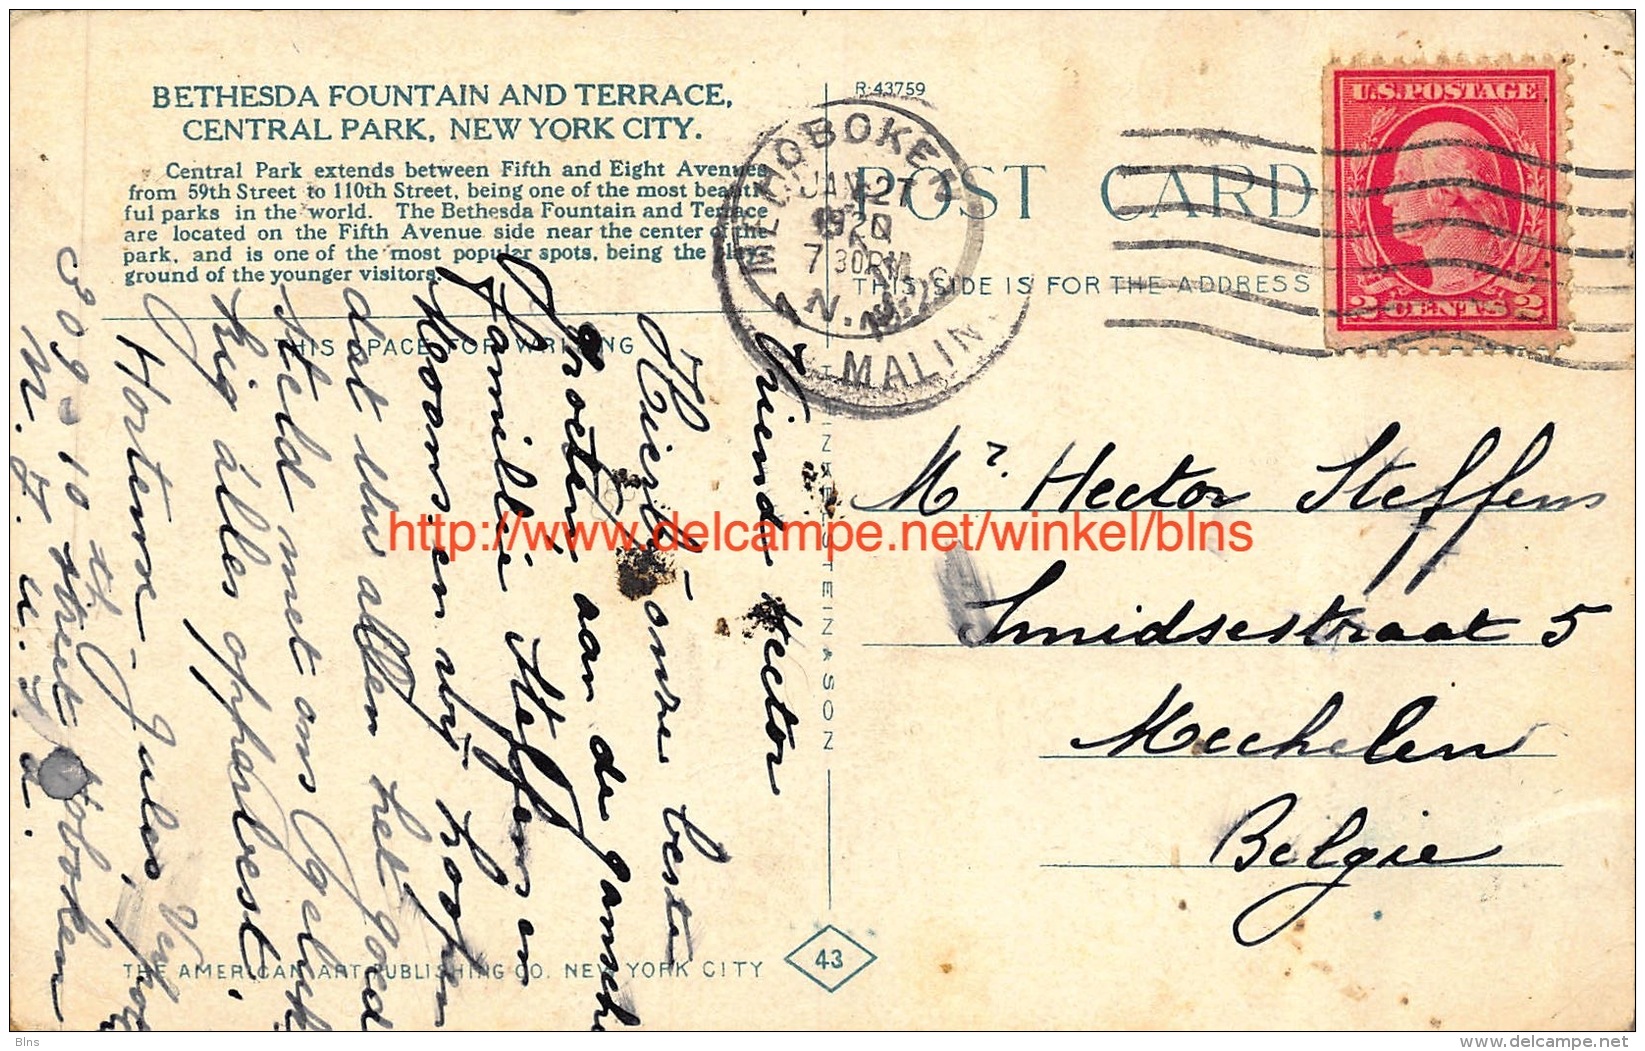 BETHESDA FOUNTAIN AND TERRACE,
CENTRAL PARK, NEW YORK CITY.
Central Park extends between Fifth and Eight Avenues
from 59th Street to 110th Street, being one of the most beauti-
ful parks in the world. The Bethesda Fountain and Terrace
are located on the Fifth Avenue side near the center of the
park, and is one of the most popular spots, being the play-
ground of the younger visitors.
THIS SPACE FOR WRITING
Vriend Hector
Hierbij onze beste
groeten aan de gansche
Familie Steffens en
Moons, en wij hoopen
dat uw allen het goed
steld met ons Geluk
kig alles opperbest.
Hortense - Jules,
309-10 th street Hoboken
N. J. U. S. A.
THE AMERICAN ART PUBLISHING CO. NEW YORK CITY
R-43759
POST CARD
THIS SIDE IS FOR THE ADDRESS
HOBOKEN
JAN 27
1920
7 30PM
N. J.
MALIN
U.S. POSTAGE
2 CENTS 2
Mr. Hector Steffens
Smidsestraat 5
Mechelen
Belgie
FINKELSTEIN & SON
43
http://www.delcampe.net/winkel/blns
Blns
www.delcampe.net